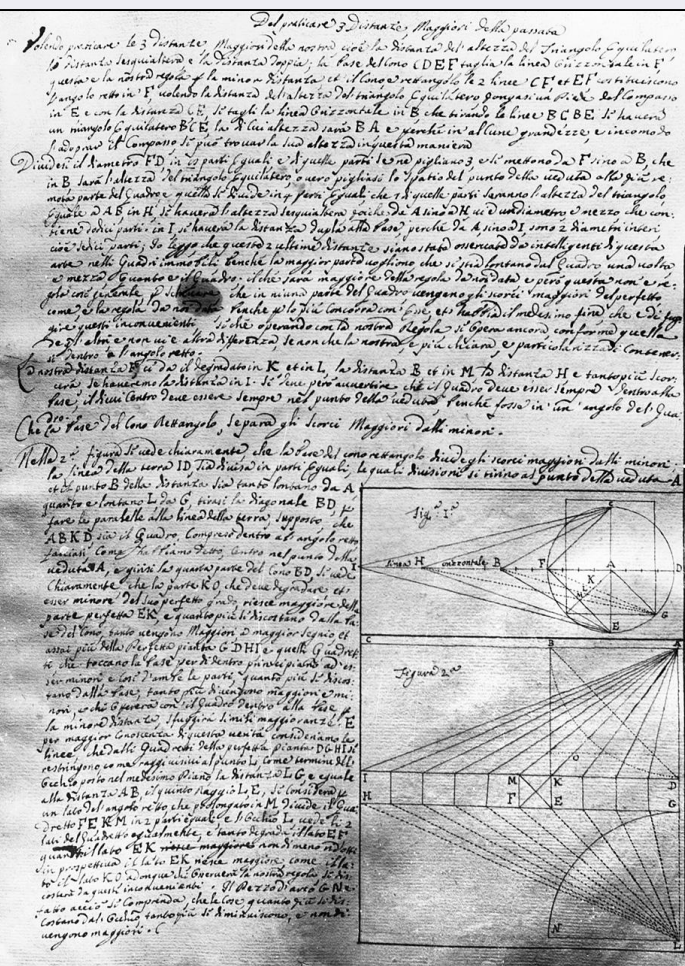 Del praticare 3 Distanze Maggiori della passata
Volendo praticare le 3 distanze Maggiori della nostra cioè la distanza del altezza del Triangolo Equilatero
la distanza sesquialtera e la distanza doppia; la Base del Cono CDEF taglia la linea Orizzontale in F
questa è la nostra regola la minor distanza et il Cono rettangolo le 2 linee CF et EF costituiscono
l'angolo retto in F volendo la distanza del altezza del triangolo Equilatero pongasi un Piede del Compasso
in E e con la distanza CE, si tagli la linea Orizzontale in B che tirando le linee BC BE si haverà
un triangolo Equilatero BCE, la di lui altezza sarà BA e perche in alcune grandezze, è incomodo
l'adoprar il Compasso si può trovar la sua altezza in questa maniera
Dividesi il diametro FD in parti Eguali e di quelle parti se ne pigliano 3 e si mettono da F sino a B, che
in B, sarà l'altezza del triangolo Equilatero, o vero pigliasi lo spatio del punto della veduta alla più re=
mota parte del Quadro e quella si divide in 4 parti Eguali che di quelle parti saranno l'altezza del triangolo
Eguale a AB, in H, si haverà l'altezza sesquialtera poiche da A sino a H vi è un diametro e mezzo che con=
tiene dodici parti: in I, si haverà la distanza dupla alla Base, perche da A sino a I, sono 2 diametri interi
cioè sedici parti; Io leggo che queste 2 ultime distanze siano state osservate da intelligenti di questa
arte nelli Quadri immobili benche la maggior parte vogliono che si stia lontano dal Quadro una volta
e mezza Quanto è il Quadro, il che sarà maggiore della regola da noi data e però questa non è re=
gola così generale che in niuna parte del Quadro vengano gli scorci maggiori del perfetto
come è la regola da noi data benche lo più concorra con Eue, et habbia il medesimo fine che è di fug=
gire questi inconvenienti si che operando con la nostra Regola si opera ancora conforme quella
degl'altri e non vi è altra differenza se non che la nostra è più chiara, e particolarizza di contener=
si dentro a l'angolo retto.
La nostra distanza F ci da il degradato in K et in L, la distanza B et in M la distanza H e tanto più scor=
urà se haveremo la distanza in I. Si deve però avvertire che il Quadro deve esser sempre dentro alla
Base, il di cui Centro deve essere sempre nel punto della veduta, benche fosse in un angolo del Qua=
dro.
Che la Base del Cono Rettangolo, separa gli scorci Maggiori dalli minori.
Nella 2.a figura si vede chiaramente, che la Base del cono rettangolo divide gli scorci maggiori dalli minori.
la linea della terra ID, sia divisa in parti Eguali, le quali divisioni si tirino al punto della veduta A
et il punto B della distanza sia tanto lontano da A
quanto è lontano L da G, tirasi la diagonale BD,
fare le paralelle alla linea della terra, supposto, che
ABKD sia il Quadro, Compreso dentro al angolo retto
facciasi Centro nel punto della
veduta A, e girisi la quarta parte del Cono BD, si vede
Chiaramente, che la parte KO, che deve degradare et
esser minore del suo perfetto grado, riesce maggiore della
parte perfetta EK, e quanto più si discostano dalla ba=
se del Cono, tanto vengono Maggiori a maggior segno et
assai più della Perfetta pianta GDHI e quelli Quadret=
ti che toccano la base per di dentro principiano ad es=
ser minori e così d'ambe le parti, quanto più si discos=
tano dalla Base, tanto più divengono maggiori e mi=
nori, e chi Opererà con il Quadro dentro alla base
la minore distanza, sfuggirà simili maggioranze, E
per maggior Conoscenza di questa verità consideriamo le
linee che dalli Quadretti della perfetta pianta DGHI si
restringono come raggi visivi al punto L, come termine del
Occhio posto nel medesimo Piano la distanza LG, è eguale
alla distanza AB, il quinto raggio LE, si considera
un lato del angolo retto che prolongato in M divide il Qua
dretto FEKM in 2 parti eguali e l'Occhio L, vede li 2
lati del Quadretto egualmente, e tanto degrada il lato EF
quanto il lato EK
in prospettiva il lato EK riesce maggiore come il la=
to il lato KO, dunque chi osserverà la nostra regola si dis=
costerà da questi inconvenienti. Il Pezzo d'arco GN è
fatto acciò si Comprenda, che le Cose, quanto più si dis=
costano dal Occhio, tanto più si diminuiscono, e non di=
vengono maggiori.
Fig.a I.a
C
I linea H orizzontale B F A D
K
E G
C B A
Figura 2.a
O
I M K D
H F E G
N
L